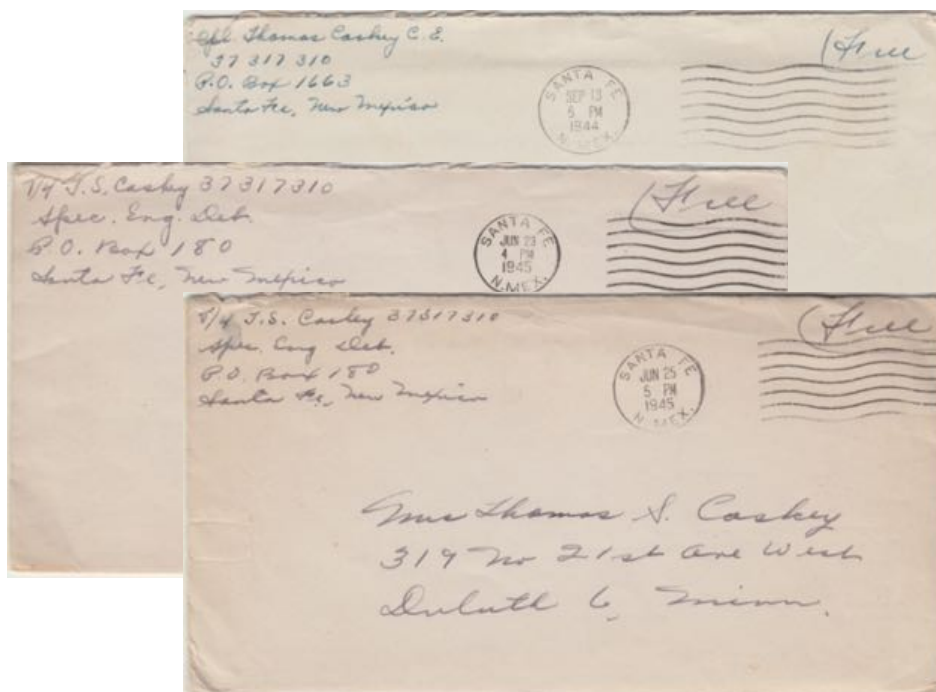 Cpl. Thomas Caskey C.E.
37 317 310
P.O. Box 1663
Santa Fe, New Mexico
SANTA FE
SEP 13
5 PM
1944
N.MEX.
(Free
T/4 T.S. Caskey 37317310
Spec. Eng. Det.
P.O. Box 180
Santa Fe, New Mexico
SANTA FE
JUN 23
4 PM
1945
N.MEX.
(Free
T/4 T.S. Caskey 37317310
Spec. Eng Det.
P.O. Box 180
Santa Fe, New Mexico
SANTA FE
JUN 25
5 PM
1945
N.MEX.
(Free
Mrs Thomas S. Caskey
319 No 21st Ave West
Duluth 6, Minn.